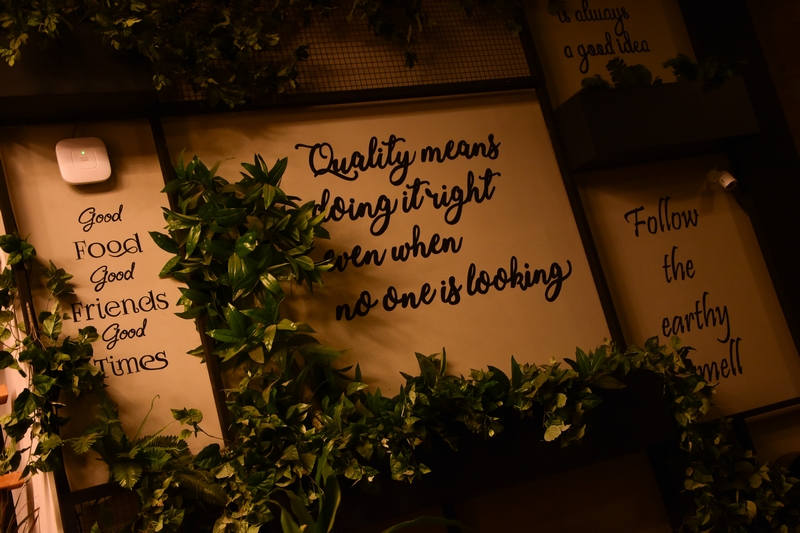 Good
Food
Good
Friends
Good
Times
Quality means
doing it right
even when
no one is looking
is always
a good idea
Follow
the
earthy